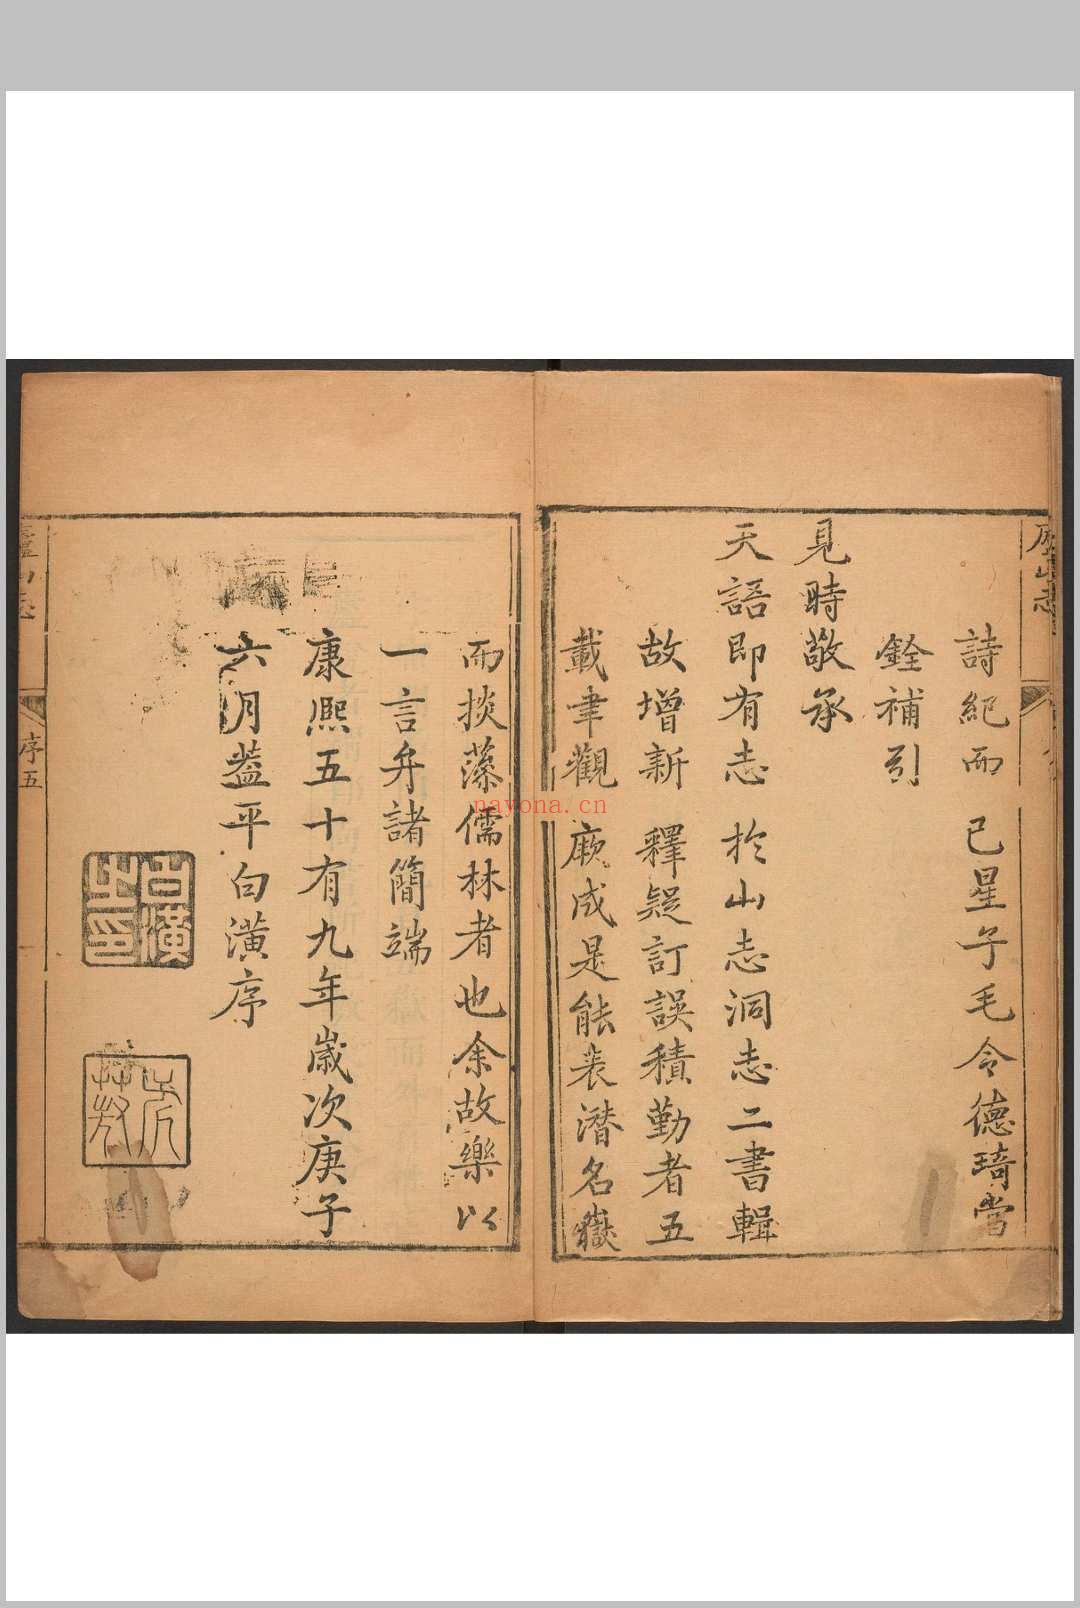 詩紀而已星子毛令德琦嘗
銓補引
見時敬承
天語即有志於山志洞志二書輯
故增新釋疑訂誤積勤者五
載聿觀厥成是能表潛名嶽
而掞藻儒林者也余故樂以
一言弁諸簡端
康熙五十有九年歲次庚子
六月蓋平白潢序
白潢
之印
序五
nayona.cn